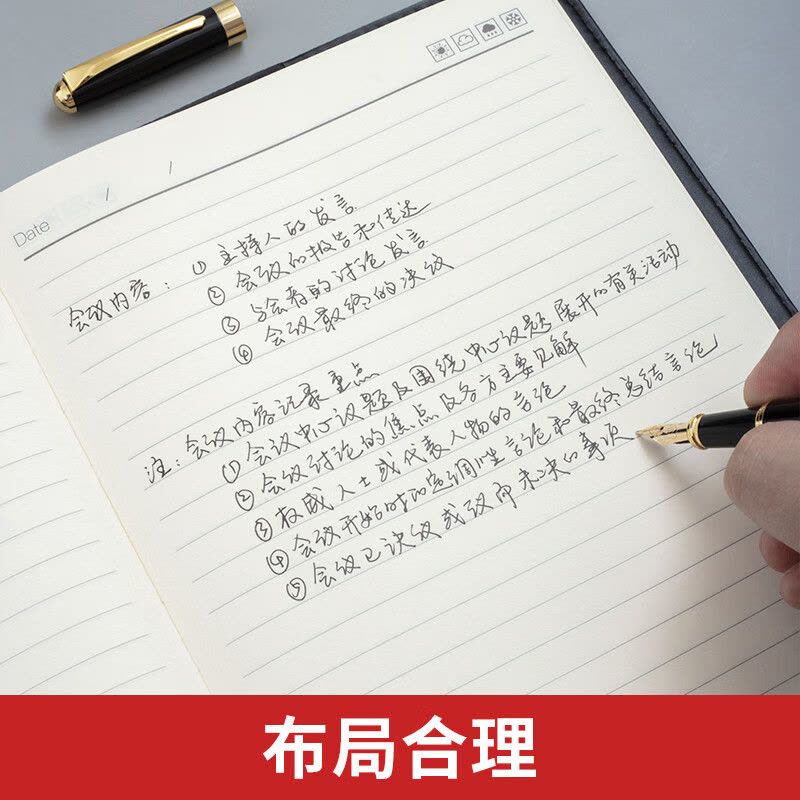 Date / /
会议内容：①主持人的发言
②会议的报告和传达
③与会者的讨论发言
④会议最终的决议
注：会议内容记录重点
①会议中心议题及围绕中心议题展开的有关活动
②会议讨论的焦点及各方主要见解
③权威人士或代表人物的言论
④会议开始时的定调性言论和最终总结言论
⑤会议已决议或议而未决的事项
布局合理